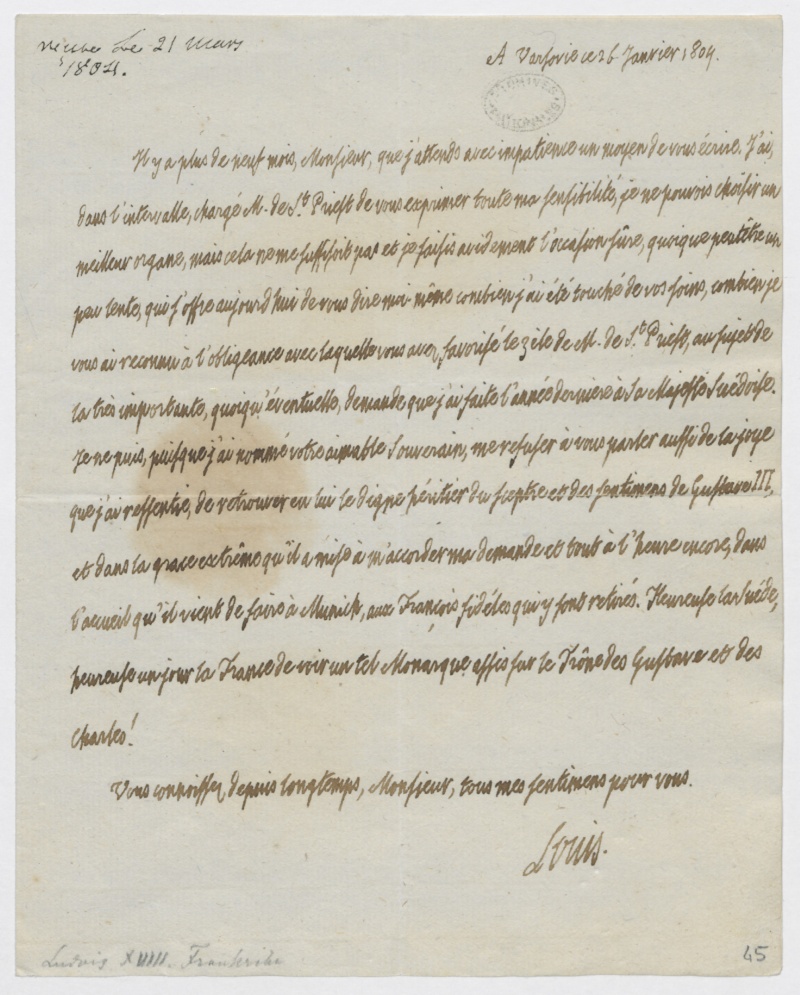 Le 21 Mars
1804.
A Varsovie ce 26 Janvier 1804.
ARCHIVES NATIONALES
Il y a plus de neuf mois, Monsieur, que j'attends avec impatience un moyen de vous écrire. J'ai,
dans l'intervalle, chargé M. de St. Priest de vous exprimer toute ma sensibilité, je ne pouvois choisir un
meilleur organe, mais cela ne me suffisoit pas et je saisis avidement l'occasion sûre, quoique peutêtre un
peu lente, qui s'offre aujourd'hui de vous dire moi même combien j'ai été touché de vos soins, combien je
vous ai reconnu à l'obligeance avec laquelle vous avez favorisé le zile de M. de St. Priest, au sujet de
la très importante, quoiqu'éventuelle, demande que j'ai faite l'année derniere à Sa Majesté Suédoise.
Je ne puis, puisque j'ai nommé votre aimable Souverain, me refuser à vous parler aussi de la joye
que j'ai ressentie, de retrouver en lui le digne héritier du sceptre et des sentimens de Gustave III,
et dans la grace extrême qu'il a mise à m'accorder ma demande et tout à l'heure encore, dans
l'accueil qu'il vient de faire à Munich, aux François fidéles qui y sont retirés. Heureuse la Suéde,
heureuse un jour la France de voir un tel Monarque assis sur le Trône des Gustave et des
Charles!
Vous connoissez depuis longtemps, Monsieur, tous mes sentimens pour vous.
Louis.
Ludvig XVIII. Frankrike
45